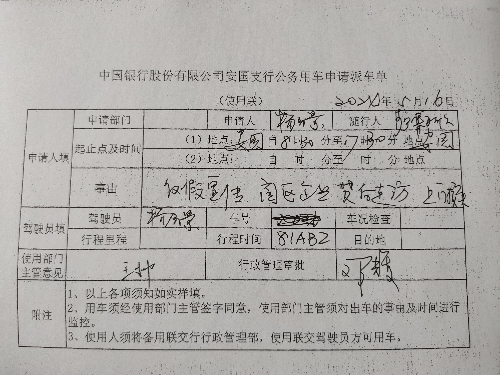 中国银行股份有限公司安国支行公务用车申请派车单
(使用联) 2024年5月16日
申请人填 申请部门 申请人 随行人
起止点及时间 (1)地点:安国 自8时30分至17时30分 地点 安国
(2)地点: 自 时 分至 时 分 地点
事由 反假宣传
驾驶员填 驾驶员 车号 车况检查
行程里程 行程时间 81AB2 目的地
使用部门主管意见 行政管理审批
附注 1、以上各项须知如实祥填。
2、用车须经使用部门主管签字同意,使用部门主管须对出车的事由及时间进行
监控。
3、使用人须将备用联交行行政管理部,使用联交驾驶员方可用车。